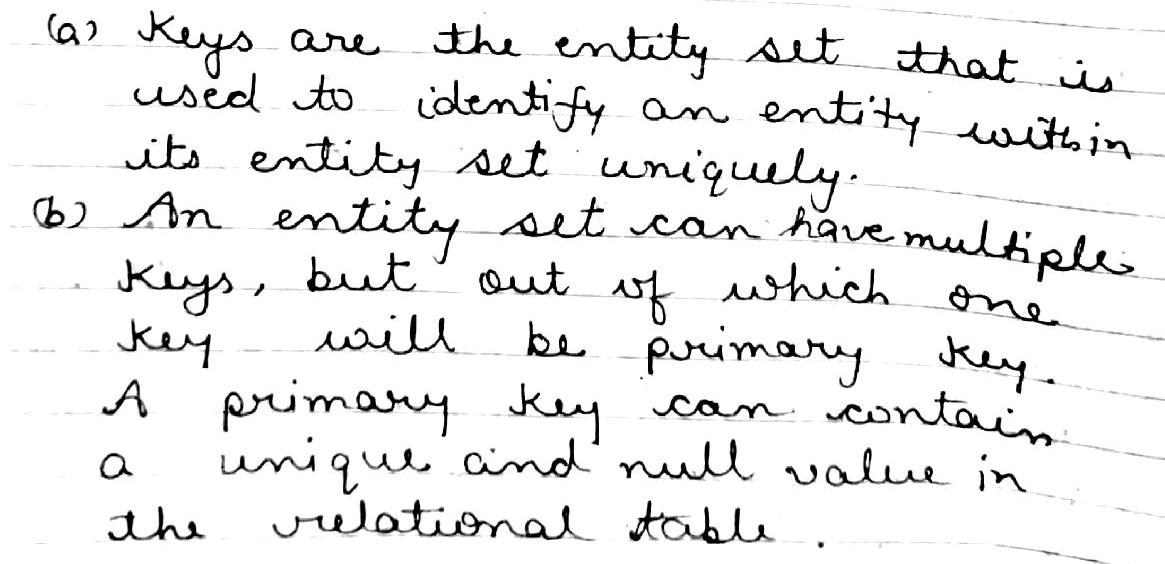 (a) Keys are the entity set that is
used to identify an entity within
its entity set uniquely.
(b) An entity set can have multiple
keys, but out of which one
key will be primary key.
A primary key can contain
a unique and null value in
the relational table.